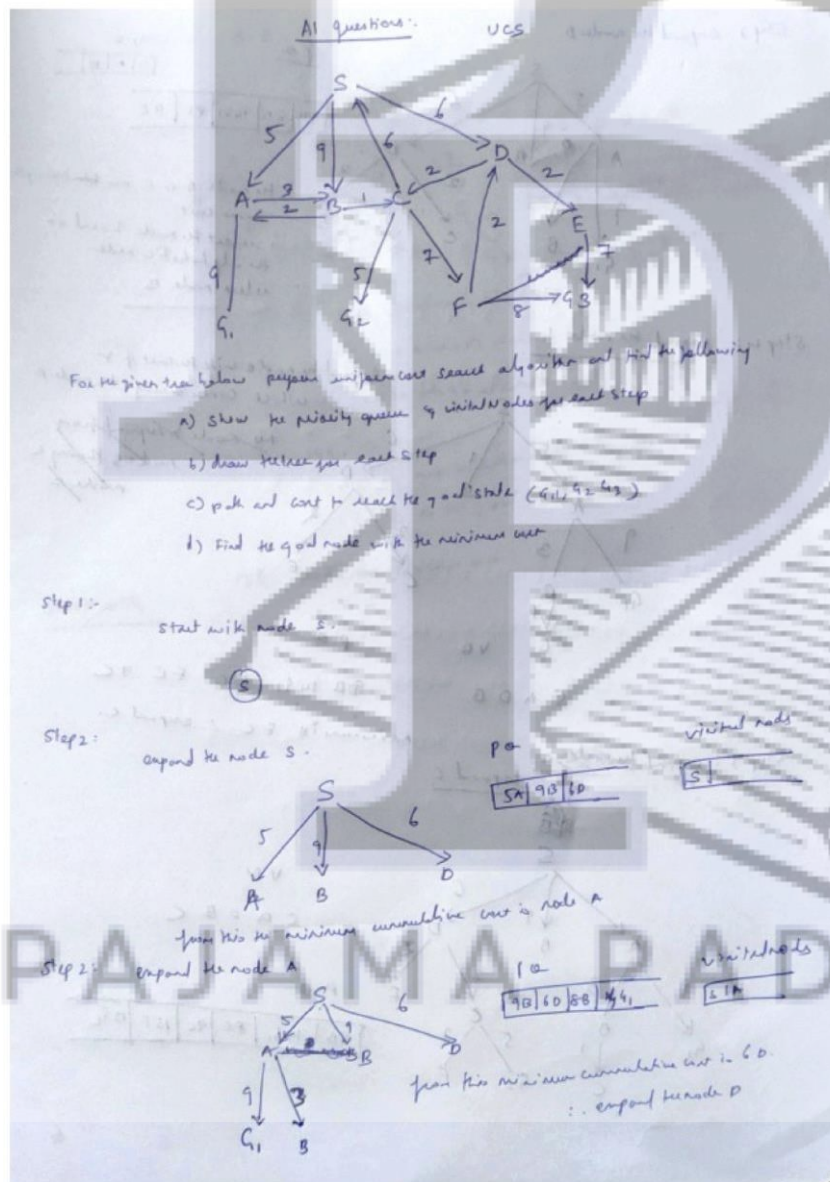 AI questions:- UCS
S
5 9 6 6
D
A 3 B 1 C 2 2
2
E
9 5 7 2 7
G1 G2 F 8 G3
For the given tree below perform uniform cost search algorithm and find the following
a) show the priority queue & visited Nodes for each step
b) draw the tree for each step
c) path and cost to reach the goal state (G1, G2 G3)
d) Find the goal node with the minimum cost
Step 1:-
start with node S.
S
Step 2:
expand the node S.
PQ visited nodes
5A 9B 6D S
S
5 9 6
A B D
from this the minimum cummulative cost is node A
Step 2: expand the node A
PQ visited nodes
9B 6D 8B G1 S A
S
5 9 6
A B D
9 3
G1 B
from this minimum cummulative cost is 6D.
∴ expand the node D
PAJAMA PAD